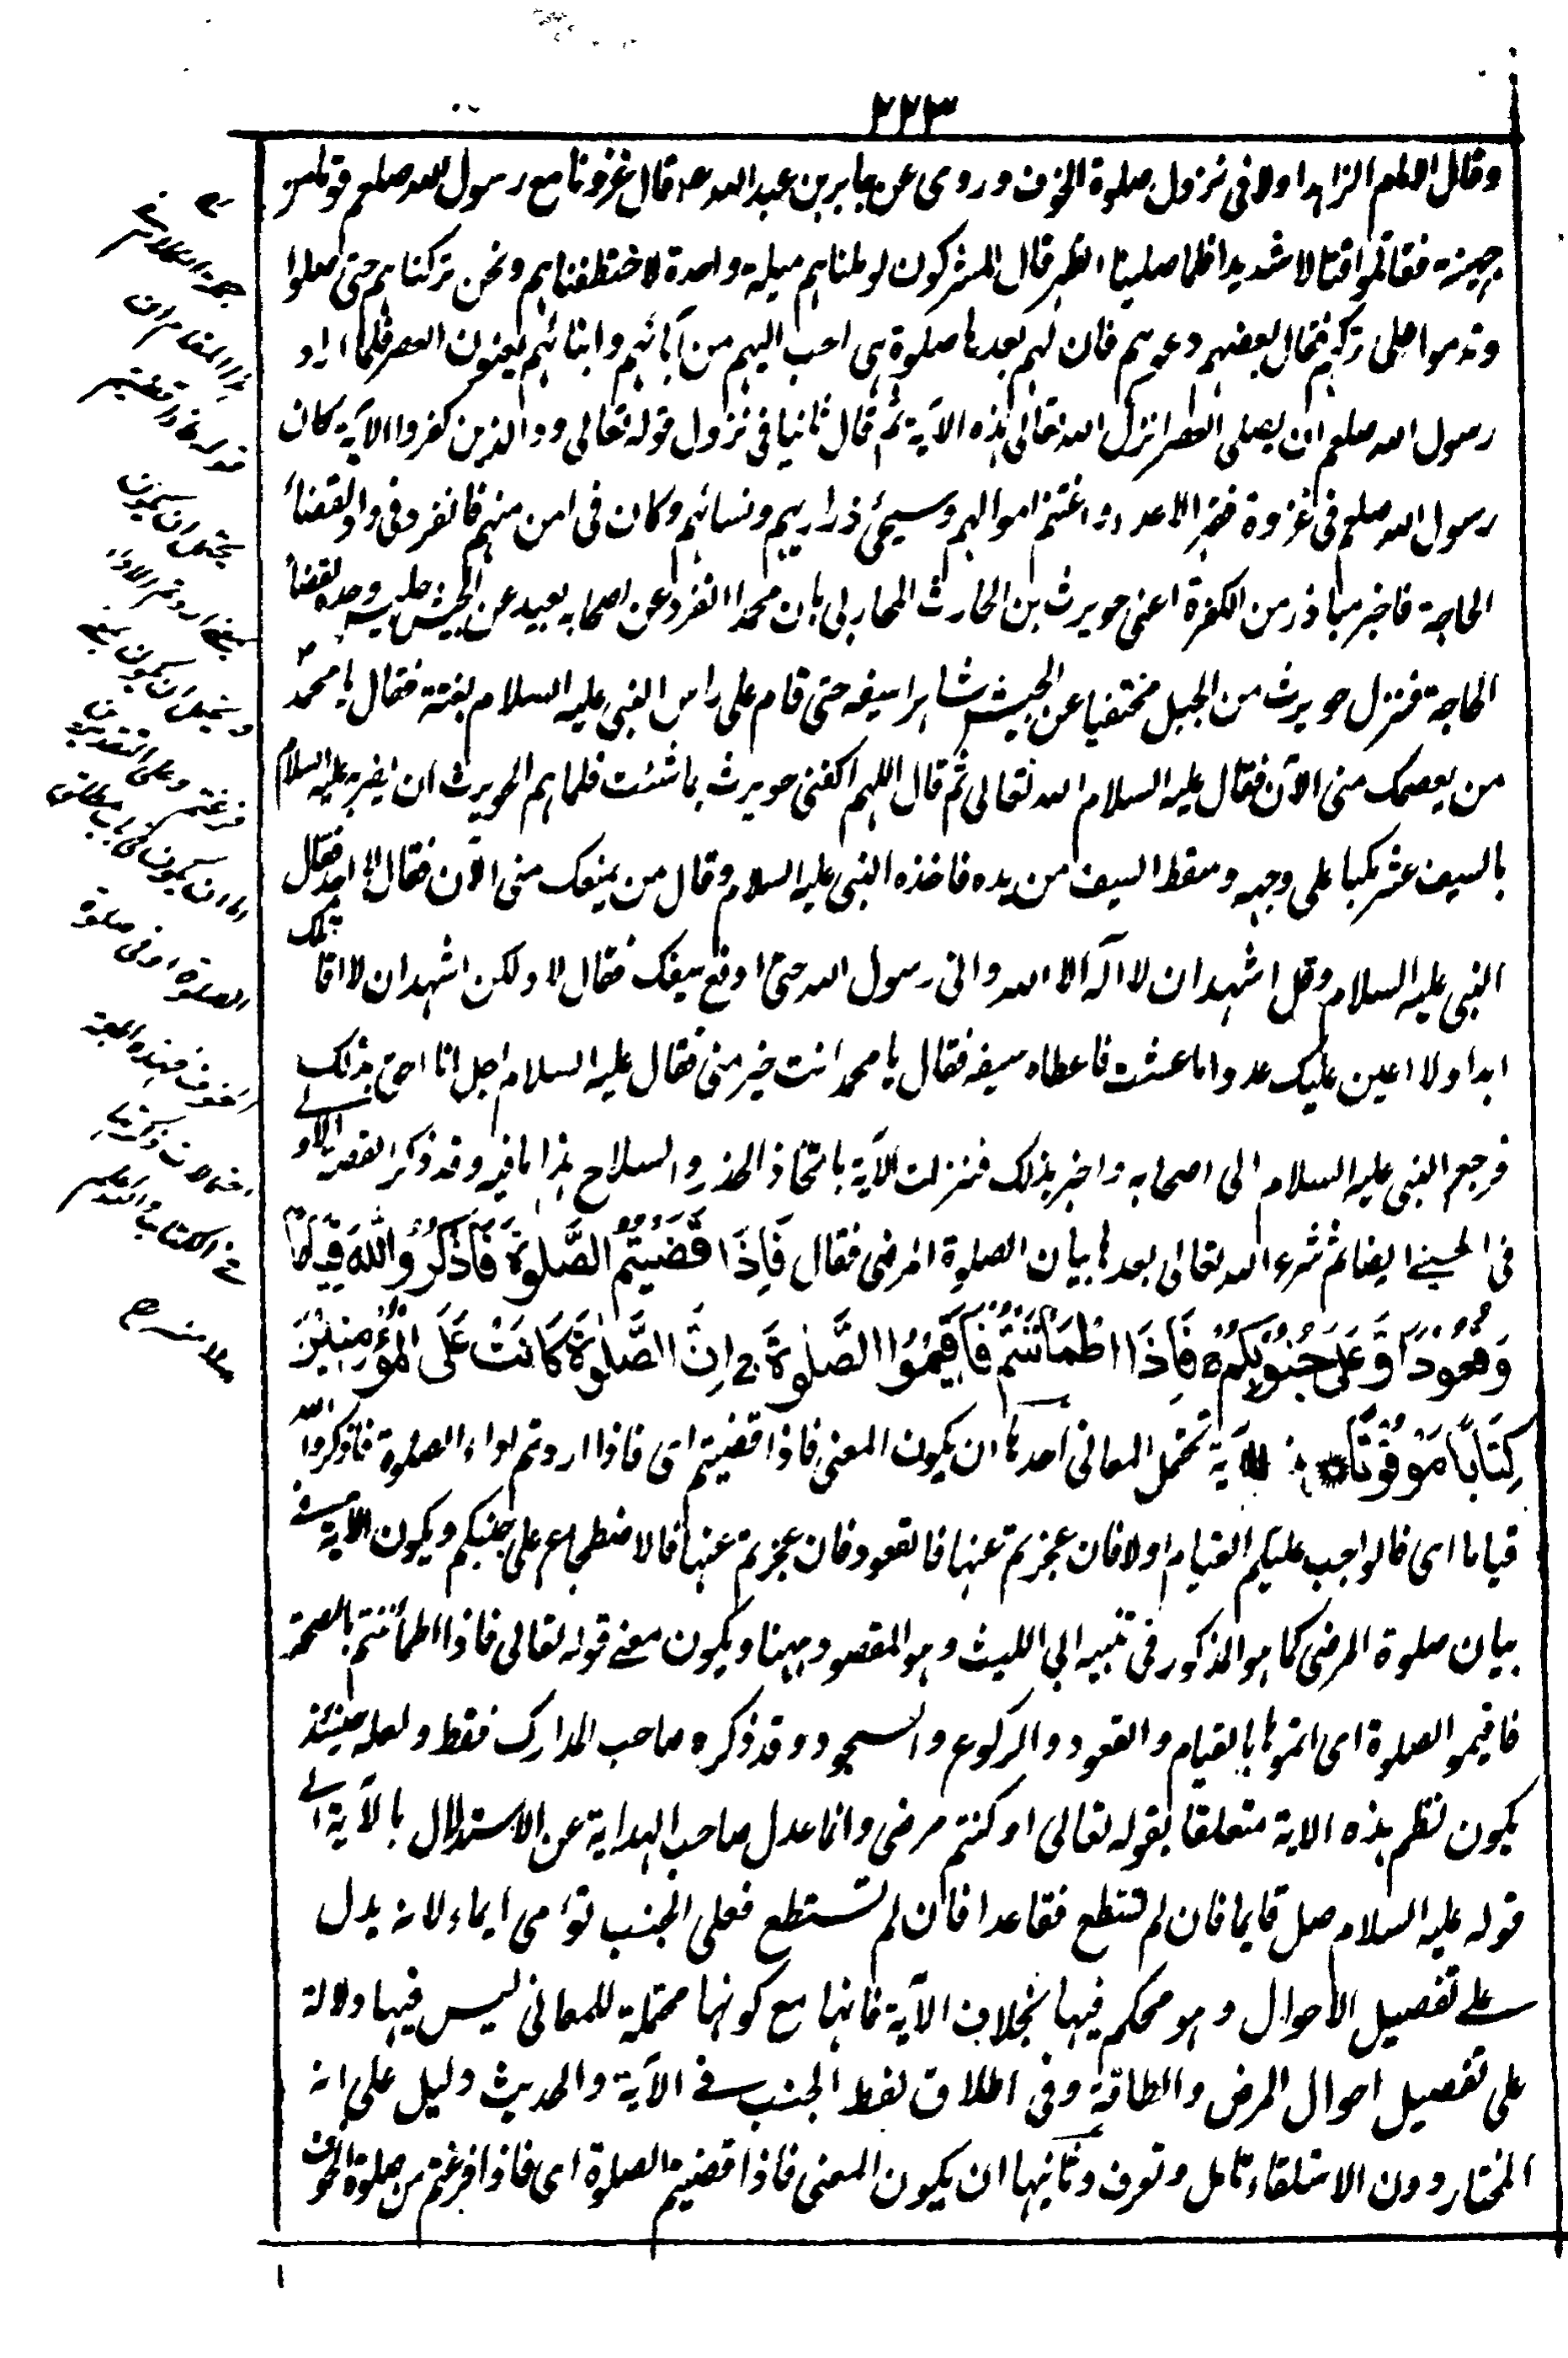 ٢٢٣
وقال الامام الزاهد اولا فى نزول صلوة الخوف وروى عن جابر بن عبد الله رضـ قال غزونا مع رسول الله صلعم قوما من
جهينة فقاتلوا قتالا شديدا فلما صلينا الظهر قال المشركون لو ملناهم ميلة واحدة لاختطفناهم ونحن تركناهم حتى صلوا
وندموا على تركهم فقال بعضهم دعوهم فان لهم بعدها صلوة هى احب اليهم من آبائهم وابنائهم يعنون العصر فلما اراد
رسول الله صلعم ان يصلى العصر انزل الله تعالى هذه الآية ثم قال ثانيا فى نزول قوله تعالى ود الذين كفروا الآية كان
رسول الله صلعم فى غزوة فهزم الاعداء واغتنم اموالهم وسبى ذراريهم ونسائهم وكان فى امن منهم فانفرد فى واد لقضاء
الحاجة فاخبر مباذر من الكفرة اعنى حويرث بن الحارث المحاربى بان محمدا انفرد عن اصحابه بعيد عن الجيش جلس وحده لقضاء
الحاجة فنزل حويرث من الجبل مختفيا عن الجيش شاهرا سيفه حتى قام على راس النبى عليه السلام بغتة فقال يا محمد
من يعصمك منى الآن فقال عليه السلام الله تعالى ثم قال اللهم اكفنى حويرث بما شئت فلما هم الحويرث ان يضربه عليه السلام
بالسيف عثر مكبا على وجهه وسقط السيف من يده فاخذه النبى عليه السلام وقال من يمنعك منى الآن فقال لا احد فقال
النبى عليه السلام وقل اشهد ان لا اله الا الله وانى رسول الله حتى ادفع سيفك فقال لا ولكن اشهد ان لا اقاتلك
ابدا ولا اعين عليك عدوا ما عشت فاعطاه سيفه فقال يا محمد انت خير منى فقال عليه السلام اجل انا احق بذلك
فرجع النبى عليه السلام الى اصحابه واخبر بذلك فنزلت الآية باتخاذ الحذر والسلاح هذا ما فيه وقد ذكر القصة الاولى
فى الحسينى ايضا ثم شرع الله تعالى بعدها بيان الصلوة المرضى فقال فَاِذَا قَضَيْتُمُ الصَّلٰوةَ فَاذْكُرُوا اللّٰهَ قِيَامًا
وَّقُعُوْدًا وَّعَلٰى جُنُوْبِكُمْ فَاِذَا اطْمَأْنَنْتُمْ فَاَقِيْمُوا الصَّلٰوةَ ج اِنَّ الصَّلٰوةَ كَانَتْ عَلَى الْمُؤْمِنِيْنَ
كِتَابًا مَّوْقُوْتًا الآية تحتمل المعانى احدها ان يكون المعنى فاذا قضيتم اى فاذا اردتم اداء الصلوة فاذكروا الله
قياما اى فالواجب عليكم القيام اولا فان عجزتم عنها فالقعود فان عجزتم عنها فالاضطجاع على جنبكم ويكون الآية فى
بيان صلوة المرضى كما هو المذكور فى تنبيه ابى الليث وهو المقصود ههنا ويكون معنى قوله تعالى فاذا اطمأننتم بالصحة
فاقيموا الصلوة اى اتموها بالقيام والقعود والركوع والسجود وقد ذكره صاحب المدارك فقط ولعله حينئذ
يكون نظم هذه الاية متعلقا بقوله تعالى او كنتم مرضى وانما عدل صاحب الهداية عن الاستدلال بالآية الى
قوله عليه السلام صل قايما فان لم تستطع فقاعدا فان لم تستطع فعلى الجنب تؤمى ايماء لانه يدل
على تفصيل الاحوال وهو محكم فيها بخلاف الآية فانها مع كونها محتملة للمعانى ليس فيها دلالة
على تفصيل احوال المرض والطاقة وفى اطلاق لفظ الجنب فى الآية والحديث دليل على انه
المختار دون الاستلقاء تامل وتعرف وثانيها ان يكون المعنى فاذا قضيتم الصلوة اى فاذا فرغتم من صلوة الخوف
يحتمل ان يكون
بمعنى اردتم الاداء
ويحتمل ان يكون بمعنى
فرغتم وعلى التقديرين
اما ان يكون فى باب مطلق
الصلوة او فى صلوة
الخوف فهذه اربعة
احتمالات ذكرت
فى الكتاب والله اعلم
١